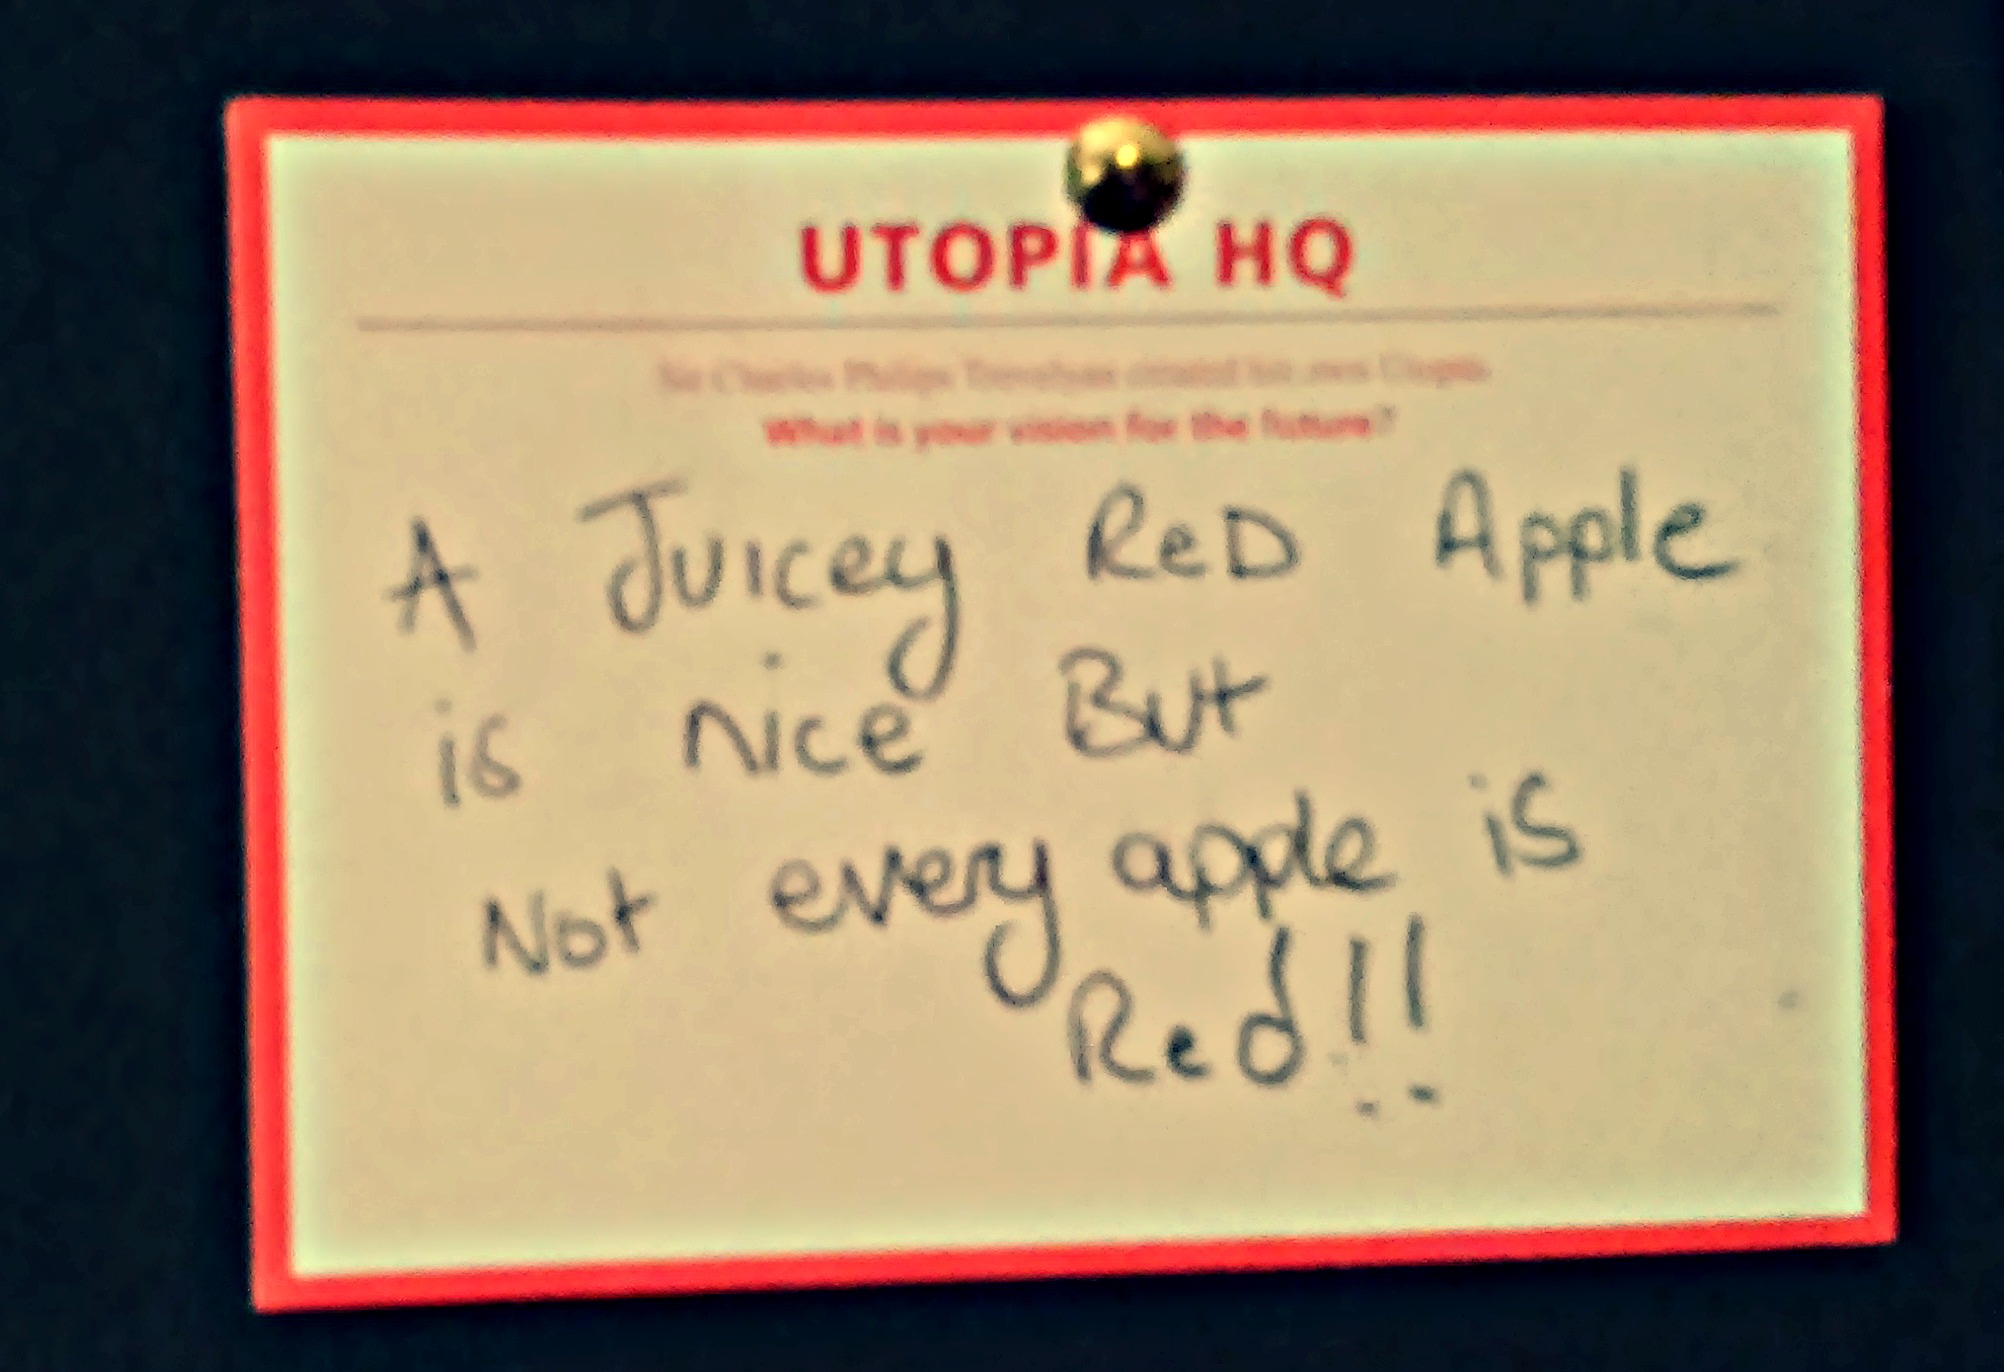 UTOPIA HQ
Sir Charles Philips Trevelyan created his own Utopia.
What is your vision for the future?
A Juicey ReD Apple
is nice But
Not every apple is
Red!!